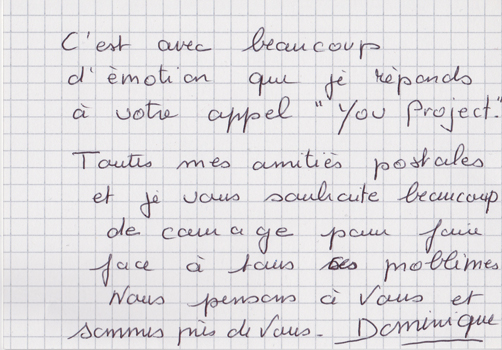 C'est avec beaucoup
d'émotion que je réponds
à votre appel "You Project".
Toutes mes amitiés postales
et je vous souhaite beaucoup
de courage pour faire
face à tous ses problèmes
Nous pensons à Vous et
sommes près de Vous. Dominique